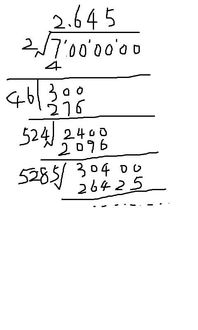 2.645
2√7'00'00'00
4
46 300
276
524 2400
2096
5285 304 00
264 2 5